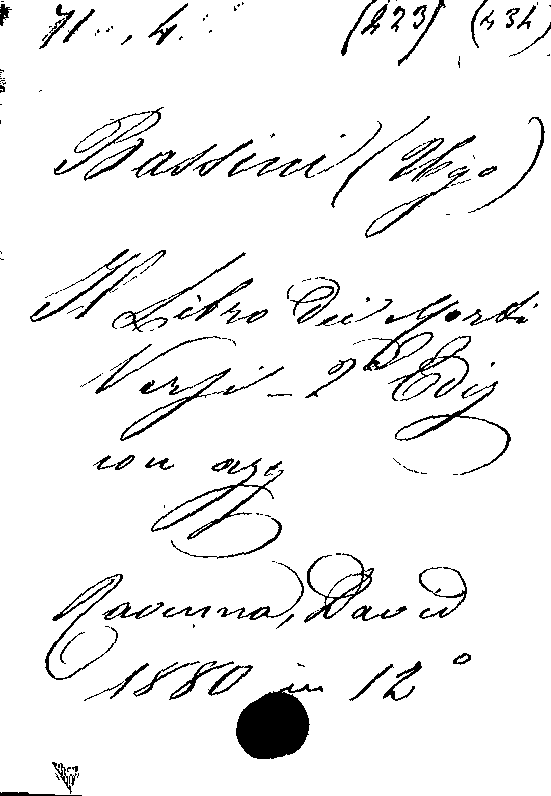 71.., 4.. (223) (434)
Bassini (Ugo)
Il Libro Dei Morti
Versi - 2ª Ediz
con agg
Ravenna, David
1880 in 12°